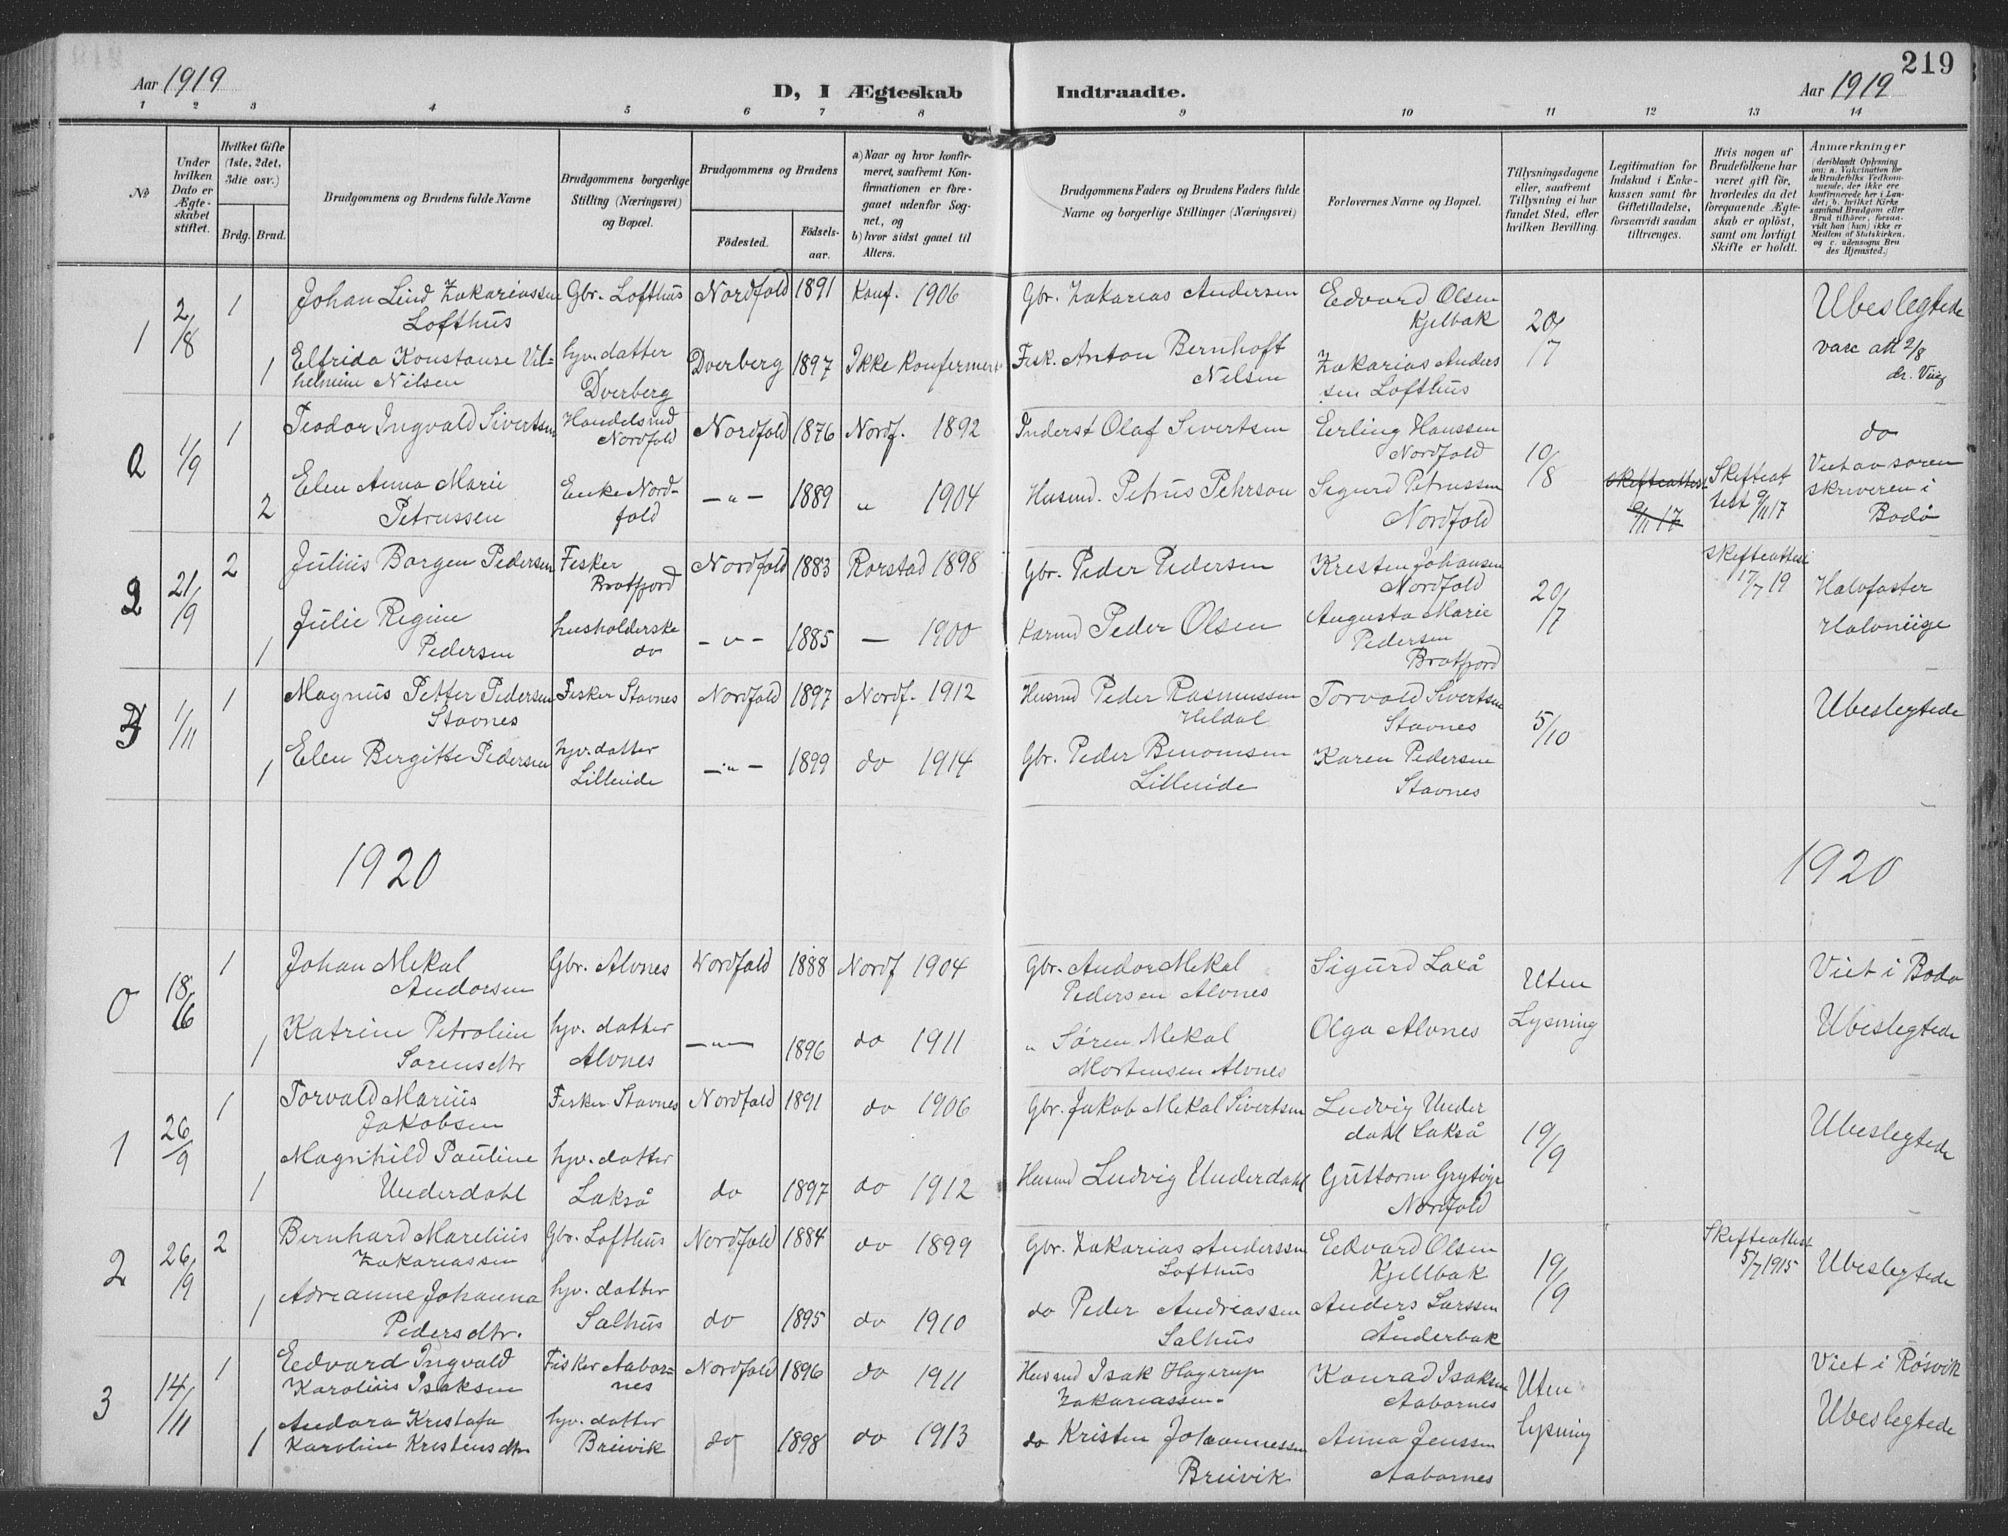 219
Aar 1919
D, I Ægteskab Indtraadte.
Aar 1919
1 2 3 4 5 6 7 8 9 10 11 12 13 14
No
Under hvilken Dato er Ægteskabet stiftet.
Hvilket Gifte (1ste, 2det, 3die osv.)
Brdg. Brud.
Brudgommens og Brudens fulde Navne
Brudgommens borgerlige Stilling (Næringsvei) og Bopæl.
Brudgommens og Brudens
Fødested. Fødselsaar.
a) Naar og hvor konfirmeret, saafremt Konfirmationen er foregaaet udenfor Sognet, og
b) hvor sidst gaaet til Alters.
Brudgommens Faders og Brudens Faders fulde Navne og borgerlige Stillinger (Næringsvei)
Forlovernes Navne og Bopæl.
Tillysningsdagene eller, saafremt Tillysning ei har fundet Sted, efter hvilken Bevilling.
Legitimation for Indskud i Enkekassen samt for Giftetilladelse, forsaavidt saadan tiltrænges.
Hvis nogen af Brudefolkene har været gift før, hvorledes da det foregaaende Ægteskab er opløst, samt om lovligt Skifte er holdt.
Anmærkninger
(deriblandt Oplysning om: a. Vaccination for de Brudefolks Vedkommende, der ikke ere konfirmerede her i Landet; b. hvilket Kirkesamfund Brudgom eller Brud tilhører, forsaavidt han (hun) ikke er Medlem af Statskirken, og c. udensogns Brudes Hjemsted.)
1 2/8 1 Johan Lind Zakariassen Gbr. Lofthus Nordfold 1891 Konf. 1906 Gbr. Zakarias Andersen Edvard Olsen 20/7 Ubeslegtede
Lofthus Kjelbak
1 Elfrida Konstanse Vil- hjv. datter Dverberg 1897 Ikke konfermert Fisk. Anton Bernhoft Zakarias Anders
helmine Nilsen Dverberg Nilsen sen Lofthus
1/9 1 Teodor Ingvald Sivertsen Handelsmd Nordfold 1876 Nordf. 1892 Inderst Olaf Sivertsen Erling Hanssen 10/8 do
Nordfold Nordfold
2 Elen Anna Marie Enke Nord- -"- 1889 " 1904 Husmd. Petrus Pehrson Sigurd Petrussen Skifteattest Skifteat Viet av soren
Petrussen fold Nordfold 9/11 17 test 9/11 17 skriveren i
Bodø
2 21/9 2 Julius Borgen Pedersen Fesker Nordfold 1883 Rorstad 1898 Gbr. Peder Pedersen Kresten Johansen 20/7 Skifteattest
Brotfjord Nordfold 17/7 19 Halvfaster
1 Julie Regine husholderske -"- 1885 - 1900 Peder Olsen Augusta Marie Halvneige
Pedersen do Pedersen
Brotfjord
3 1/11 1 Magnus Petter Pedersen Fesker Stavnes Nordfold 1897 Nordf. 1912 Husmd Peder Rasmussen Torvald Sivertsen 5/10 Ubeslegtede
Stavnes Heldal Stavnes
1 Elen Bergitte Pedersen hjv. datter -"- 1899 do 1914 Gbr. Peder Benonisen Karen Pedersen
Lilleeide Lilleeide Stavnes
1920 1920
0 18/6 1 Johan Mekal Gbr. Alvnes Nordfold 1888 Nordf 1904 Gbr. Andor Mekal Sigurd Laxå Uten Viet i Bodø
Andorsen Pedersen Alvnes
1 Katrine Petroline hjv. datter -"- 1896 do 1911 " Søren Mekal Olga Alvnes Lysning Ubeslegtede
Sørensdtr Alvnes Mortensen Alvnes
1 26/9 1 Torvald Marius Fesker Stavnes Nordfold 1891 do 1906 Gbr. Jakob Mekal Sivertsen Ludvig Under 19/9 Ubeslegtede
Jakobsen dahl Lakså
1 Magnhild Pauline hjv. datter
Underdahl Lakså do 1897 do 1912 Husmd Ludvig Underdahl Guttorm Grytøyr
Nordfold
2 26/9 2 Bernhard Marelius Gbr. Lofthus Nordfold 1884 do 1899 Gbr. Zakarias Anderssen Edvard Olsen 19/9 Skifteattest Ubeslegtede
Zakariassen Lofthus Kjellbak 5/7 1915
1 Adreanne Johanna hjv. datter
Pedersdtr. Salhus do 1895 do 1910 do Peder Andreassen Anders Larssen
Salhus Ånderbak
3 14/11 1 Edvard Ingvald Fisker Aabor- Nordfold 1896 do 1911 Husmd Isak Hagerup Konrad Isaksen Uten Viet i Røsvik
Karolius Isaksen nes Zakariassen. Aabornes
1 Andora Kristofa hjv. datter
Karoline Kristensdtr Breivik do 1898 do 1913 do Kristen Johannessen Anna Jenssen lysning Ubeslegtede
Breivik Aabornes